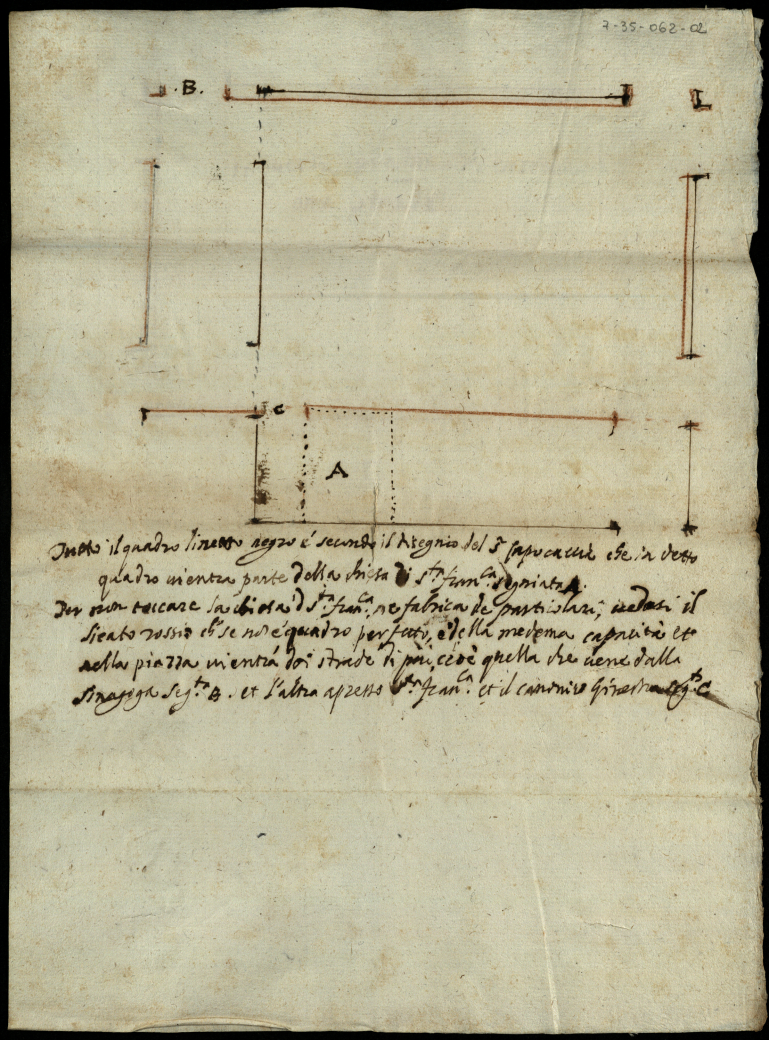 7-35-062-02
.B.
C
A
Tutto il quadro linetto negro é secondo il disegnio del S.r Capocaccia che in detto
quadro vientra parte della chiesa di S.ta Fran.ca segniata A.
Per non toccare la chiesa d S.ta Fran.ca ne fabrica de particolari, vedasi il
lieato rosso ch se non é quadro perfetto, é della medema capacità et
nella piazza vientrá doi strade di più, cioè quella che viene dalla
sinagoga seg.ta B. et l'altra apresso S.ta Fran.ca et il canonico Ginetta seg.ta C